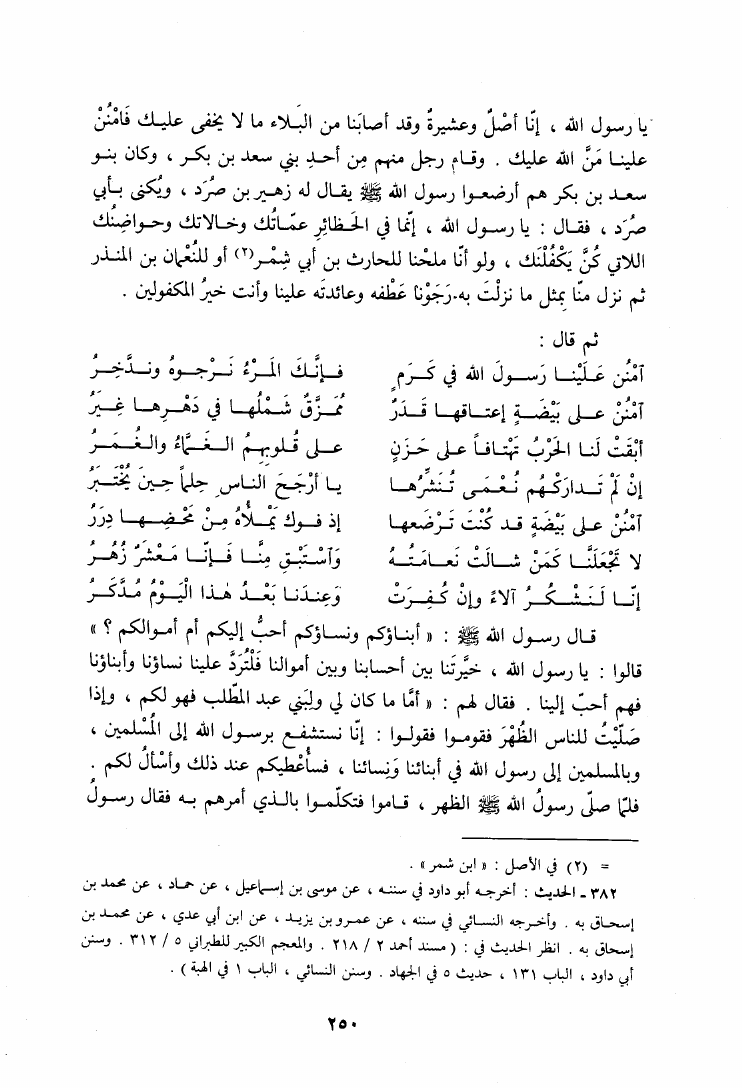 يا رسول الله ، إنّا أصْلٌ وعشيرةٌ وقد أصابَنا من البَلاء ما لا يخفى عليك فَامْنُنْ
علينا مَنَّ الله عليك . وقام رجل منهم مِن أحدِ بني سعد بن بكر ، وكان بنو
سعد بن بكر هم أرضعوا رسول الله ﷺ يقال له زهير بن صُرَد ، ويُكنى بأبي
صُرَد ، فقال : يا رسول الله ، إنّما في الحَظائرِ عمّاتُك وخالاتك وحواضِنُك
اللاتي كُنَّ يَكْفُلْنَك ، ولو أنّا ملحْنا للحارث بن أبي شِمْر(٢) أو للنُعْمان بن المنذر
ثم نزل منّا بِمثل ما نزلْتَ به رَجَوْنا عَطْفه وعائدتَه علينا وأنت خيرُ المكفولين .
ثم قال :
آمْنُن عَلَيْنا رَسولَ الله في كَرَمٍ فإنَّكَ المَرْءُ نَرْجوهُ ونَدَّخِرُ
آمْنُنْ على بَيْضَةٍ إعتاقها قَدَرٌ مُمَزَّقٌ شَمْلُها في دَهْرِها غِيَرُ
أبْقَتْ لَنا الحَرْبُ تَهْتافاً على حَزَنٍ على قُلوبِهِمُ الغَمّاءُ والغُمَرُ
إنْ لَمْ تَدارَكْهُم نُعْمَى تُنَشِّرُها يا أرْجَحَ الناسِ حِلماً حينَ يُخْتَبَرُ
آمْنُنْ على بَيْضَةٍ قد كُنْتَ تَرْضَعها إذ فوك يَمْلأهُ مِنْ مَحْضِها دِرَرُ
لا تَجْعَلَنّا كَمَنْ شالَتْ نَعامَتُهُ وَآسْتَبْقِ مِنّا فَإنّا مَعْشَرٌ زُهُرُ
إنّا لَنَشْكُرُ آلاءً وإنْ كُفِرَتْ وَعِنْدَنا بَعْدُ هٰذا الْيَوْمُ مُدَّكَرُ
قال رسول الله ﷺ : « أبناؤكم ونساؤكم أحبُّ إليكم أم أموالكم ؟ »
قالوا : يا رسول الله ، خيَّرتَنا بين أحسابنا وبين أموالنا فَلْتُرَدَّ علينا نساؤنا وأبناؤنا
فهم أحبّ إلينا . فقال لهم : « أمّا ما كان لي ولِبَني عبد المطّلب فهو لكم ، وإذا
صَلّيْتُ للناس الظُهْرَ فقوموا فقولوا : إنّا نستشفع برسول الله إلى المُسْلمين ،
وبالمسلمين إلى رسول الله في أبنائنا وَنِسائنا ، فسأُعْطيكم عند ذلك وأسْألُ لكم .
فلمّا صلّى رسولُ الله ﷺ الظهر ، قاموا فتكلّموا بالذي أمرهم به فقال رسولُ
= (٢) في الأصل : « ابن شمر » .
٣٨٢ - الحديث : أخرجه أبو داود في سننه ، عن موسى بن إسماعيل ، عن حماد ، عن محمد بن
إسحاق به . وأخرجه النسائي في سننه ، عن عمرو بن يزيد ، عن ابن أبي عدي ، عن محمد بن
إسحاق به . انظر الحديث في : ( مسند أحمد ٢ / ٢١٨ . والمعجم الكبير للطبراني ٥ / ٣١٢ . وسنن
أبي داود ، الباب ١٣١ ، حديث ٥ في الجهاد . وسنن النسائي ، الباب ١ في الهبة ) .
٢٥٠